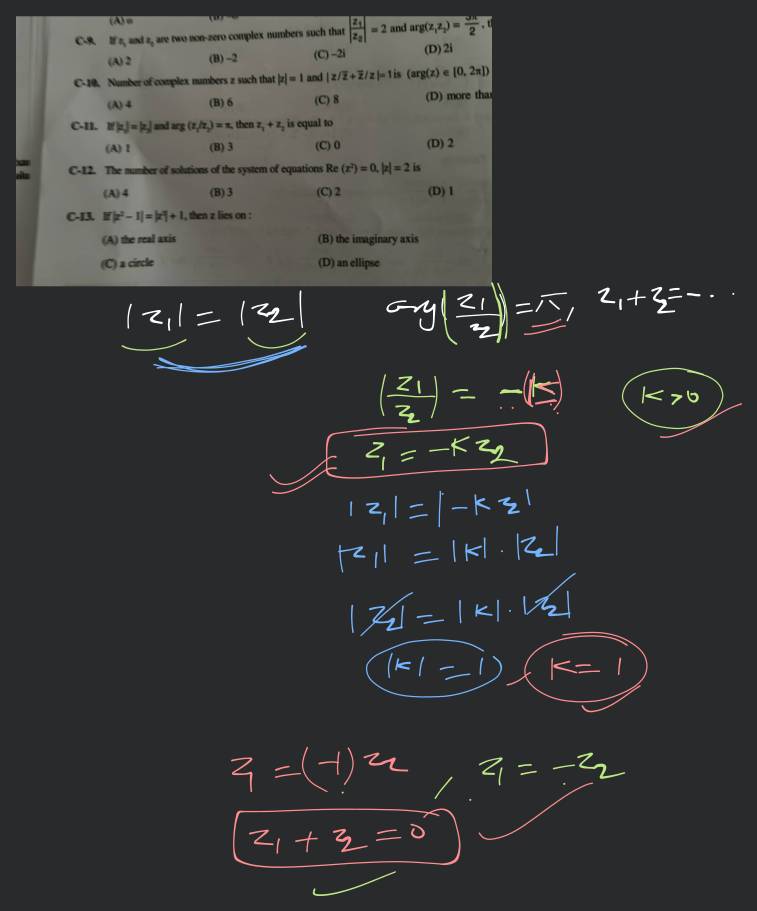 (A)
C-9. If z₁ and z₂ are two non-zero complex numbers such that |z₁/z₂| = 2 and arg(z₁z₂) = 3π/2,
(A) 2 (B) –2 (C) –2i (D) 2i
C-10. Number of complex numbers z such that |z| = 1 and |z/z̄ + z̄/z| = 1 is (arg(z) ∈ [0, 2π])
(A) 4 (B) 6 (C) 8 (D) more than
C-11. If |z₁| = |z₂| and arg (z₁/z₂) = π, then z₁ + z₂ is equal to
(A) 1 (B) 3 (C) 0 (D) 2
C-12. The number of solutions of the system of equations Re (z²) = 0, |z| = 2 is
(A) 4 (B) 3 (C) 2 (D) 1
C-13. If |z² – 1| = |z²| + 1, then z lies on :
(A) the real axis (B) the imaginary axis
(C) a circle (D) an ellipse
|z₁| = |z₂| arg(z₁/z₂) = π, z₁ + z₂ = - ...
(z₁/z₂) = -(K) K > 0
z₁ = -K z₂
|z₁| = |-K z₂|
|z₁| = |K| . |z₂|
|z₂| = |K| . |z₂|
|K| = 1 K = 1
z₁ = (-1) z₂, z₁ = -z₂
z₁ + z₂ = 0